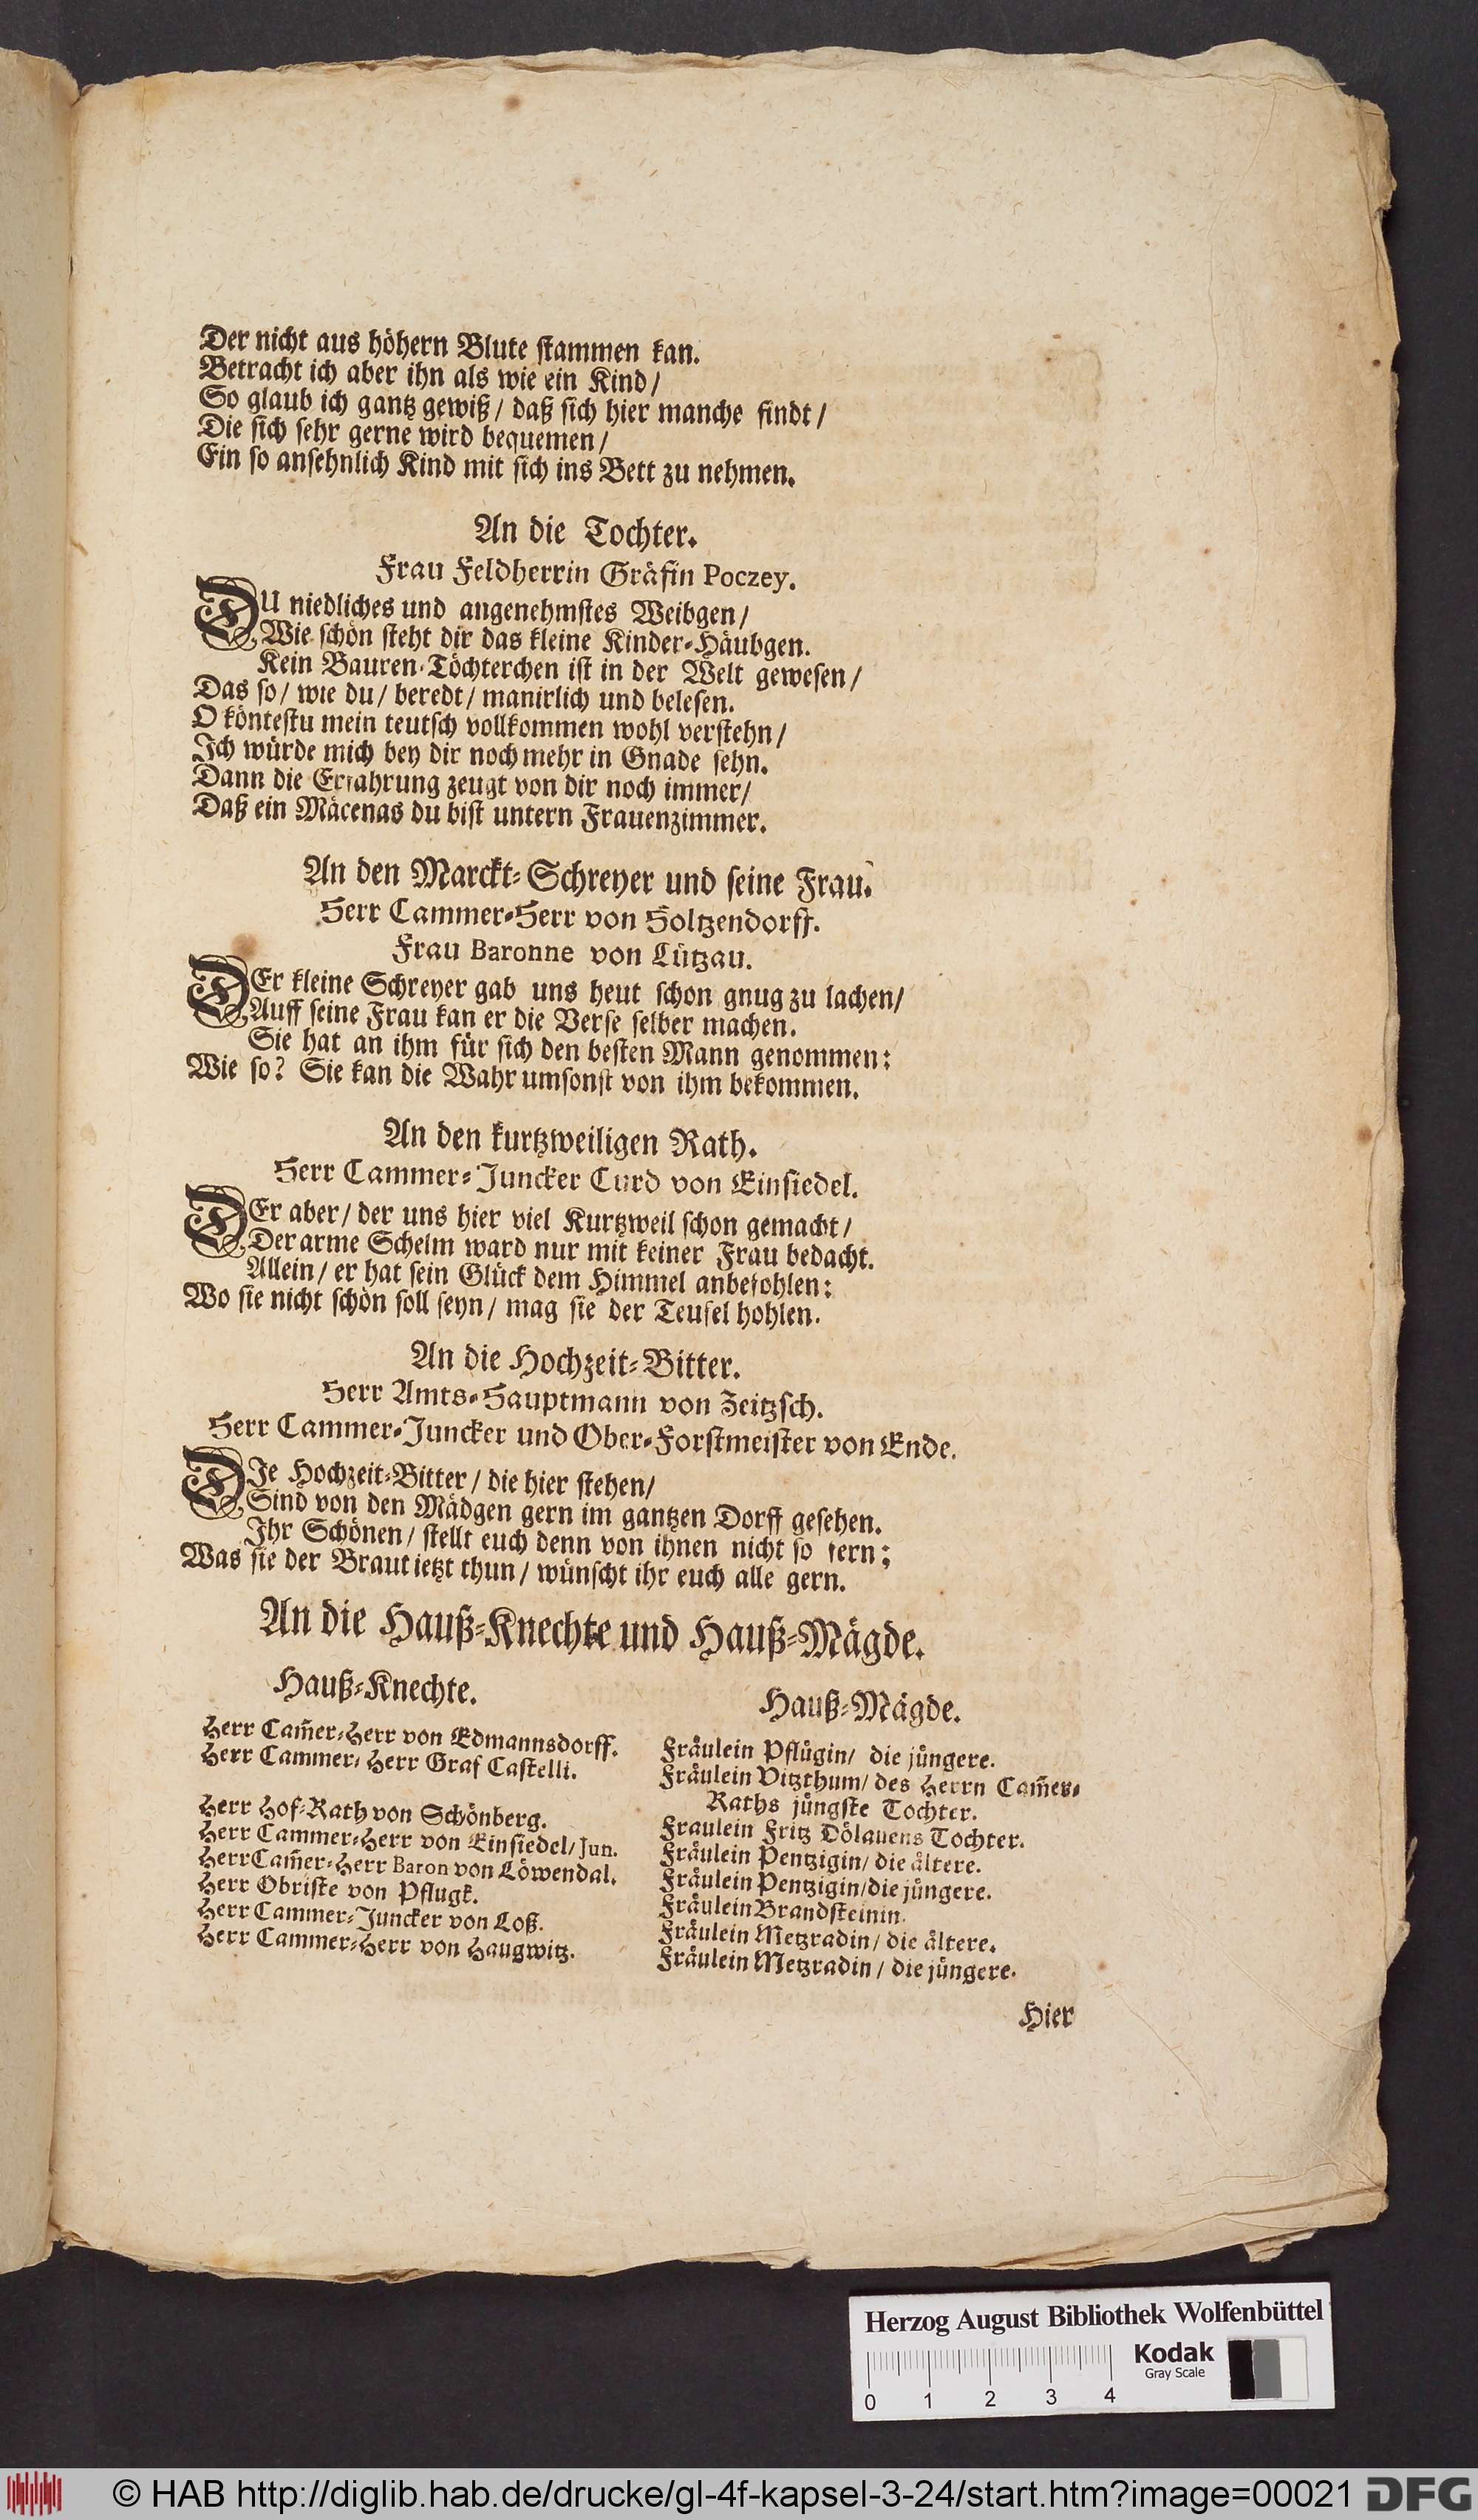 Der nicht aus höhern Blute stammen kan.
Betracht ich aber ihn als wie ein Kind/
So glaub ich gantz gewiß/ daß sich hier manche findt/
Die sich sehr gerne wird bequemen/
Ein so ansehnlich Kind mit sich ins Bett zu nehmen.
An die Tochter.
Frau Feldherrin Gräfin Poczey.
DU niedliches und angenehmstes Weibgen/
Wie schön steht dir das kleine Kinder-Häubgen.
Kein Bauren-Töchterchen ist in der Welt gewesen/
Das so/ wie du/ beredt/ manirlich und belesen.
O köntestu mein teutsch vollkommen wohl verstehn/
Ich würde mich bey dir noch mehr in Gnade sehn.
Dann die Erfahrung zeugt von dir noch immer/
Daß ein Mäcenas du bist untern Frauenzimmer.
An den Marckt-Schreyer und seine Frau.
Herr Cammer-Herr von Holtzendorff.
Frau Baronne von Lützau.
DEr kleine Schreyer gab uns heut schon gnug zu lachen/
Auff seine Frau kan er die Verse selber machen.
Sie hat an ihm für sich den besten Mann genommen:
Wie so? Sie kan die Wahr umsonst von ihm bekommen.
An den kurtzweiligen Rath.
Herr Cammer-Juncker Curd von Einsiedel.
DEr aber/ der uns hier viel Kurtzweil schon gemacht/
Der arme Schelm ward nur mit keiner Frau bedacht.
Allein/ er hat sein Glück dem Himmel anbefohlen:
Wo sie nicht schön soll seyn/ mag sie der Teufel hohlen.
An die Hochzeit-Bitter.
Herr Amts-Hauptmann von Zeitzsch.
Herr Cammer-Juncker und Ober-Forstmeister von Ende.
DIe Hochzeit-Bitter/ die hier stehen/
Sind von den Mädgen gern im gantzen Dorff gesehen.
Ihr Schönen/ stellt euch denn von ihnen nicht so fern;
Was sie der Braut ietzt thun/ wünscht ihr euch alle gern.
An die Hauß-Knechte und Hauß-Mägde.
Hauß-Knechte.
Herr Cam̃er-Herr von Edmannsdorff.
Herr Cammer-Herr Graf Castelli.
Herr Hof-Rath von Schönberg.
Herr Cammer-Herr von Einsiedel/ Jun.
Herr Cam̃er-Herr Baron von Löwendal.
Herr Obriste von Pflugk.
Herr Cammer-Juncker von Loß.
Herr Cammer-Herr von Haugwitz.
Hauß-Mägde.
Fräulein Pflügin/ die jüngere.
Fräulein Vitzthum/ des Herrn Cam̃er-
Raths jüngste Tochter.
Fraulein Fritz Dölauens Tochter.
Fräulein Pentzigin/ die ältere.
Fräulein Pentzigin/ die jüngere.
Fräulein Brandsteinin.
Fräulein Metzradin/ die ältere.
Fräulein Metzradin/ die jüngere.
Hier
Herzog August Bibliothek Wolfenbüttel
Kodak
Gray Scale
0 1 2 3 4
© HAB http://diglib.hab.de/drucke/gl-4f-kapsel-3-24/start.htm?image=00021
DFG